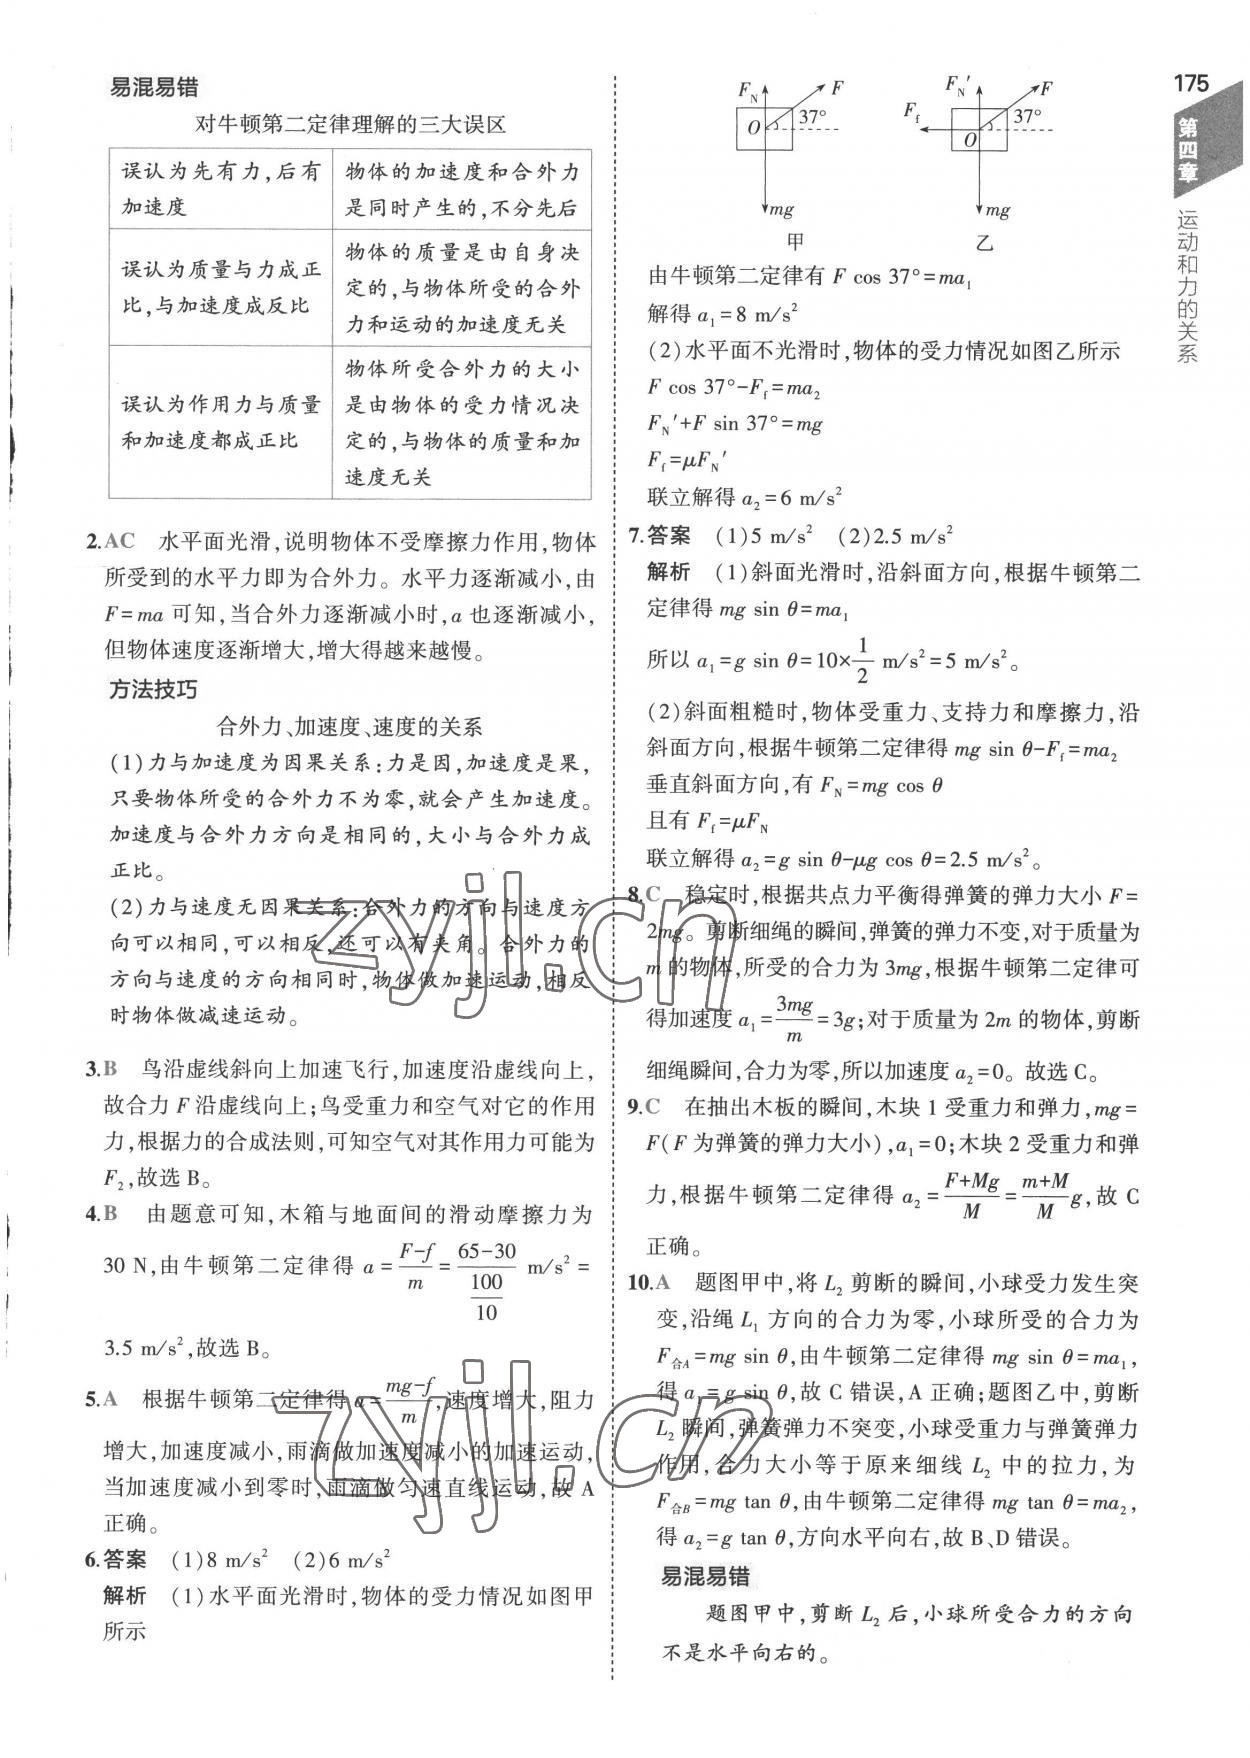 175
第四章
运动和力的关系
易混易错
对牛顿第二定律理解的三大误区
误认为先有力,后有
加速度
物体的加速度和合外力
是同时产生的,不分先后
误认为质量与力成正
比,与加速度成反比
物体的质量是由自身决
定的,与物体所受的合外
力和运动的加速度无关
误认为作用力与质量
和加速度都成正比
物体所受合外力的大小
是由物体的受力情况决
定的,与物体的质量和加
速度无关
2.AC 水平面光滑,说明物体不受摩擦力作用,物体
所受到的水平力即为合外力。水平力逐渐减小,由
F=ma 可知,当合外力逐渐减小时,a 也逐渐减小,
但物体速度逐渐增大,增大得越来越慢。
方法技巧
合外力、加速度、速度的关系
(1)力与加速度为因果关系:力是因,加速度是果,
只要物体所受的合外力不为零,就会产生加速度。
加速度与合外力方向是相同的,大小与合外力成
正比。
(2)力与速度无因果关系:合外力的方向与速度方
向可以相同,可以相反,还可以有夹角。合外力的
方向与速度的方向相同时,物体做加速运动,相反
时物体做减速运动。
3.B 鸟沿虚线斜向上加速飞行,加速度沿虚线向上,
故合力 F 沿虚线向上;鸟受重力和空气对它的作用
力,根据力的合成法则,可知空气对其作用力可能为
F₂,故选 B。
4.B 由题意可知,木箱与地面间的滑动摩擦力为
30 N,由牛顿第二定律得 a=\frac{F-f}{m}=\frac{65-30}{\frac{100}{10}} m/s²=
3.5 m/s²,故选 B。
5.A 根据牛顿第二定律得 a=\frac{mg-f}{m},速度增大,阻力
增大,加速度减小,雨滴做加速度减小的加速运动,
当加速度减小到零时,雨滴做匀速直线运动,故 A
正确。
6.答案 (1)8 m/s² (2)6 m/s²
解析 (1)水平面光滑时,物体的受力情况如图甲
所示
F_N F 37° O mg 甲
F_N′ F F_f 37° O mg 乙
由牛顿第二定律有 F cos 37°=ma₁
解得 a₁=8 m/s²
(2)水平面不光滑时,物体的受力情况如图乙所示
F cos 37°-F_f=ma₂
F_N′+F sin 37°=mg
F_f=μF_N′
联立解得 a₂=6 m/s²
7.答案 (1)5 m/s² (2)2.5 m/s²
解析 (1)斜面光滑时,沿斜面方向,根据牛顿第二
定律得 mg sin θ=ma₁
所以 a₁=g sin θ=10×\frac{1}{2} m/s²=5 m/s²。
(2)斜面粗糙时,物体受重力、支持力和摩擦力,沿
斜面方向,根据牛顿第二定律得 mg sin θ-F_f=ma₂
垂直斜面方向,有 F_N=mg cos θ
且有 F_f=μF_N
联立解得 a₂=g sin θ-μg cos θ=2.5 m/s²。
8.C 稳定时,根据共点力平衡得弹簧的弹力大小 F=
2mg。剪断细绳的瞬间,弹簧的弹力不变,对于质量为
m 的物体,所受的合力为 3mg,根据牛顿第二定律可
得加速度 a₁=\frac{3mg}{m}=3g;对于质量为 2m 的物体,剪断
细绳瞬间,合力为零,所以加速度 a₂=0。故选 C。
9.C 在抽出木板的瞬间,木块 1 受重力和弹力,mg=
F(F 为弹簧的弹力大小),a₁=0;木块 2 受重力和弹
力,根据牛顿第二定律得 a₂=\frac{F+Mg}{M}=\frac{m+M}{M}g,故 C
正确。
10.A 题图甲中,将 L₂ 剪断的瞬间,小球受力发生突
变,沿绳 L₁ 方向的合力为零,小球所受的合力为
F_合A=mg sin θ,由牛顿第二定律得 mg sin θ=ma₁,
得 a₁=g sin θ,故 C 错误,A 正确;题图乙中,剪断
L₂ 瞬间,弹簧弹力不突变,小球受重力与弹簧弹力
作用,合力大小等于原来细线 L₂ 中的拉力,为
F_合B=mg tan θ,由牛顿第二定律得 mg tan θ=ma₂,
得 a₂=g tan θ,方向水平向右,故 B、D 错误。
易混易错
题图甲中,剪断 L₂ 后,小球所受合力的方向
不是水平向右的。
zyjl.cn
zyjl.cn